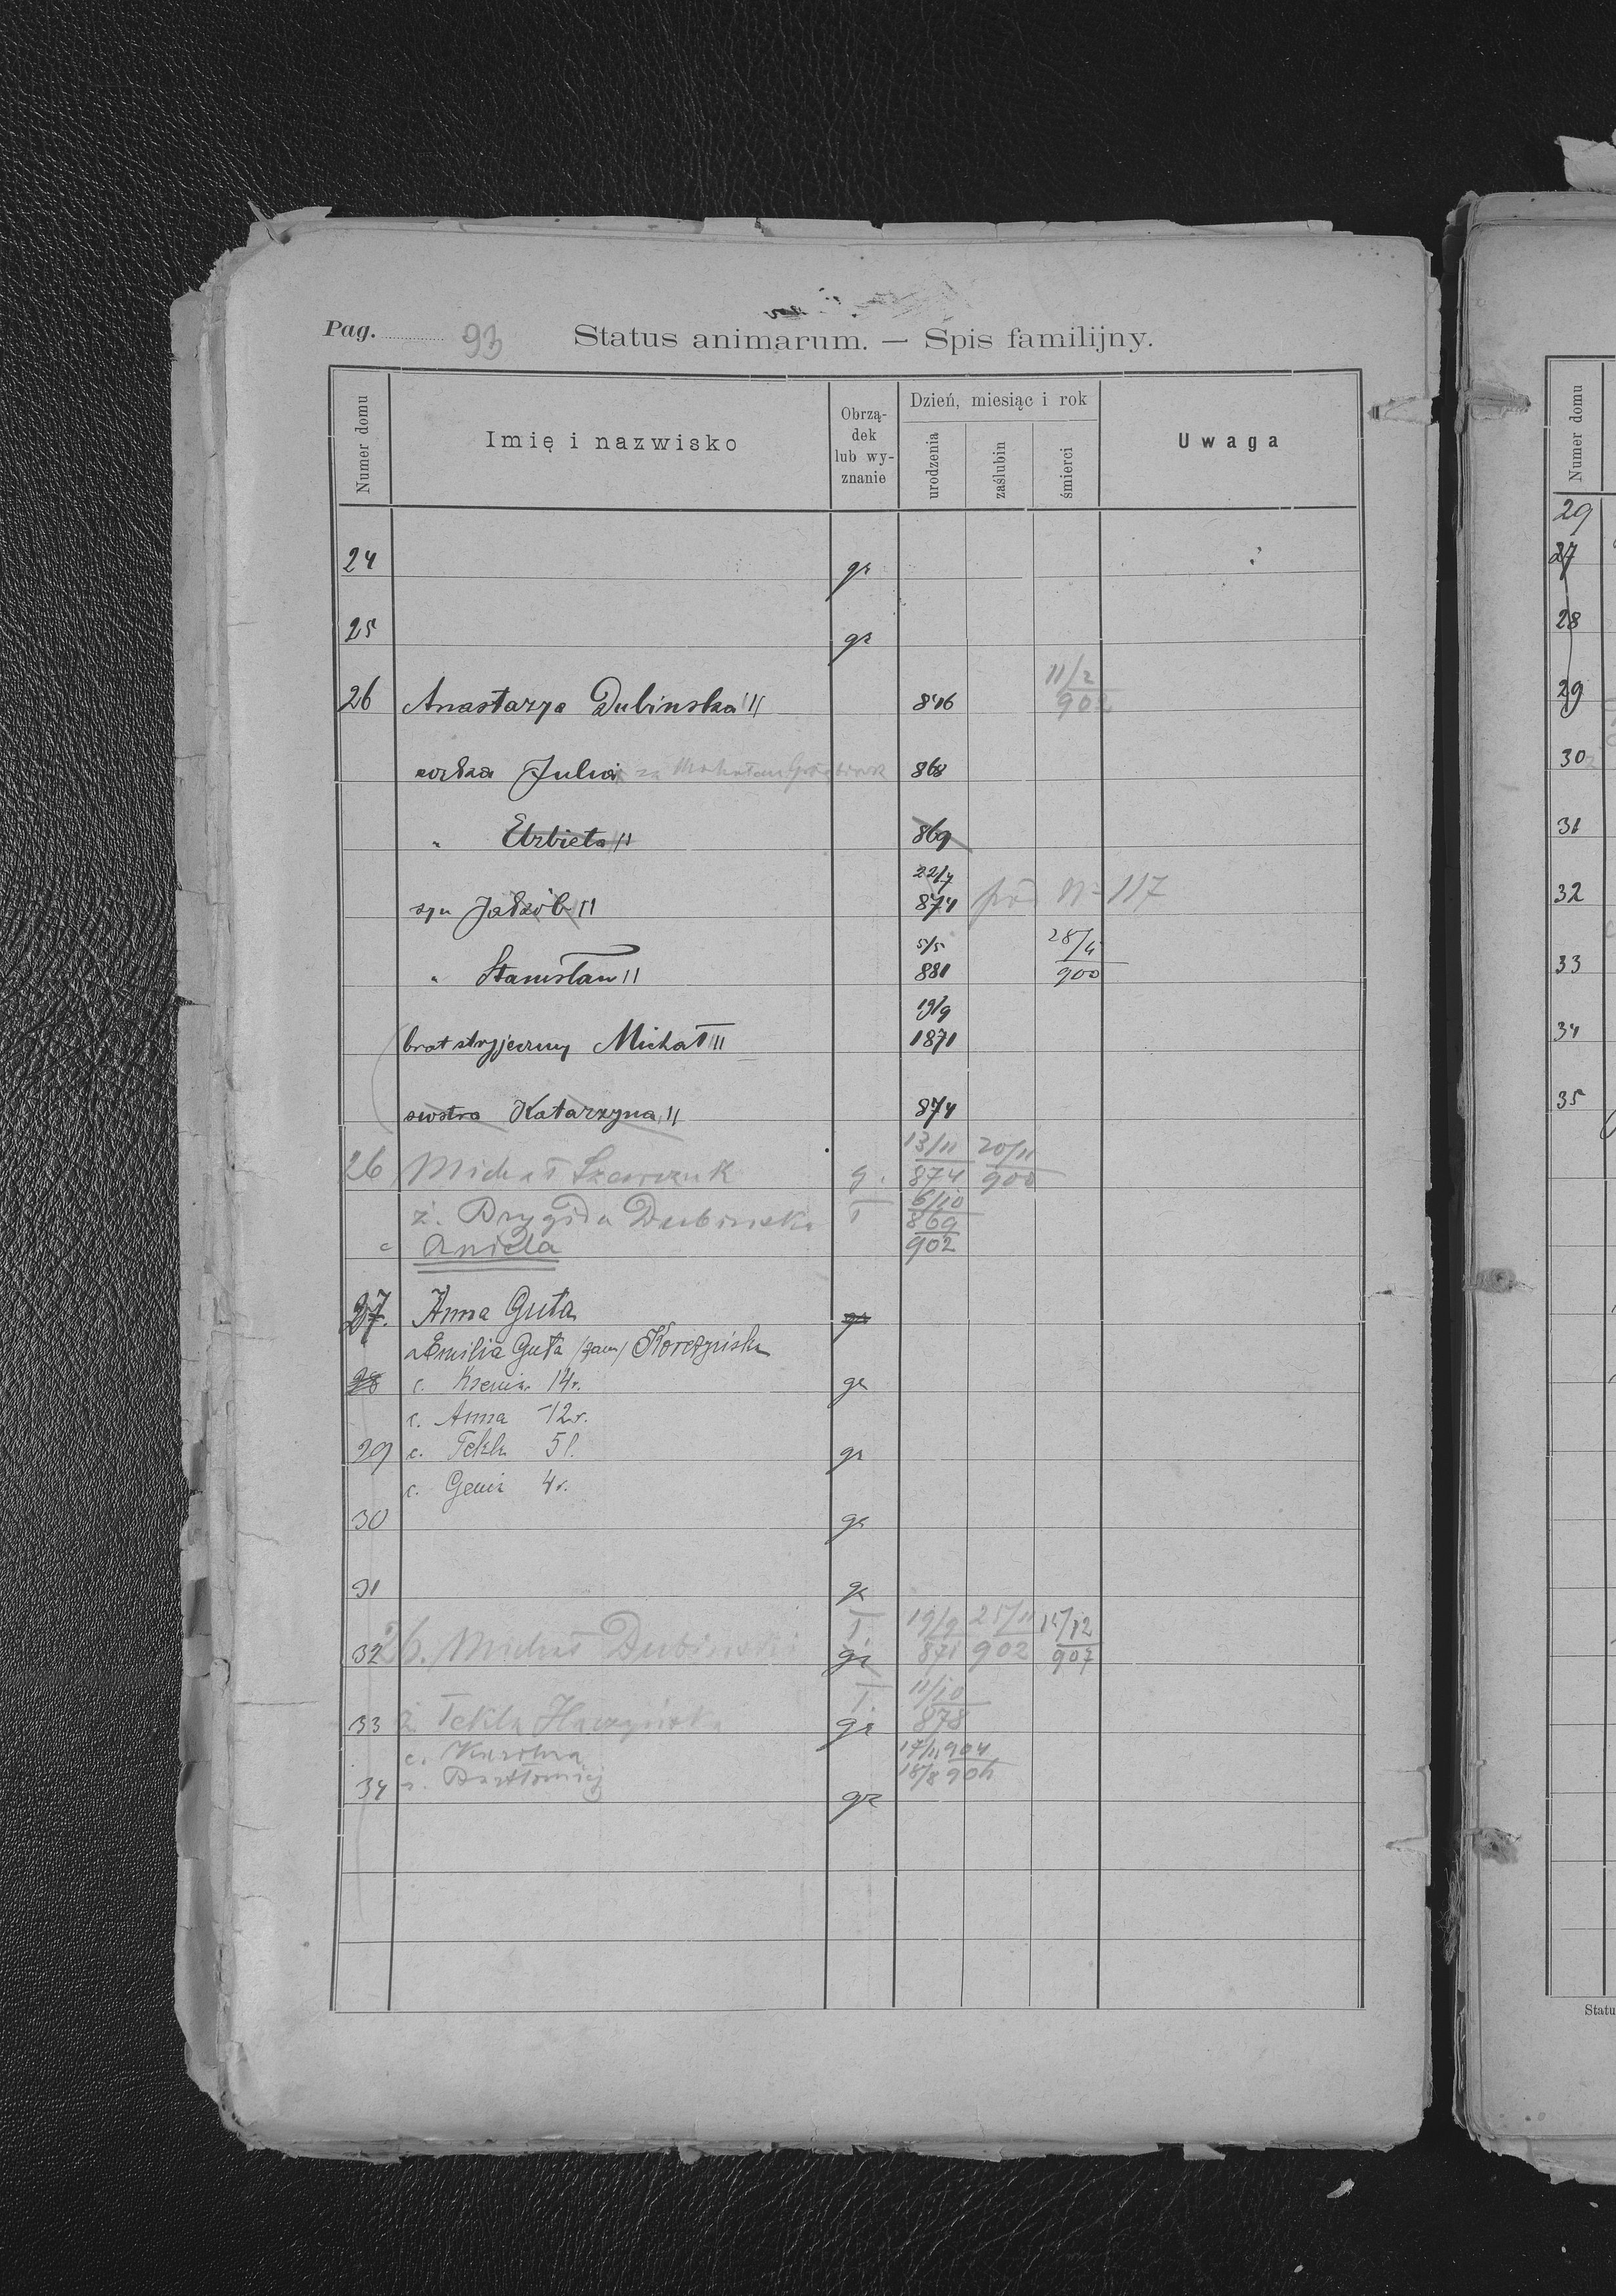 Pag. 93 Status animarum. — Spis familijny.
Numer domu
Imię i nazwisko
Obrzą-
dek
lub wy-
znanie
Dzień, miesiąc i rok
urodzenia
zaślubin
śmierci
Uwaga
24 gr
25 gr
26 Anastazya Dubinska 846 11/2 902
córka Julia za 868
" Elżbieta 869
syn Jakób 22/7 874 pod N= 117
" Stanisław 5/5 881 28/4 900
brat stryjeczny Michał 19/9 1871
siostra Katarzyna 874
26 Michał Szewczuk g. 13/11 874 20/11 900
ż. Brygida Dubinska ł 6/10 869
c Aniela 902
27. Anna Guta gr
Emilia Guta /zam/ Korczyńska
28 c. Ksenia 14r. gr
c. Anna 12r.
29 c. Tekla 5l. gr
c. Genia 4r.
30 gr
31 gr
32 26. Michał Dubinski ł gr 19/9 871 25/11 902 15/12 907
33 ż. Tekla ł gr 11/10 878
c. Karolina 17/11 904
34 s. Bartłomiej gr 18/8 906
Numer domu
29
27
28
29
30
31
32
33
34
35
Statu